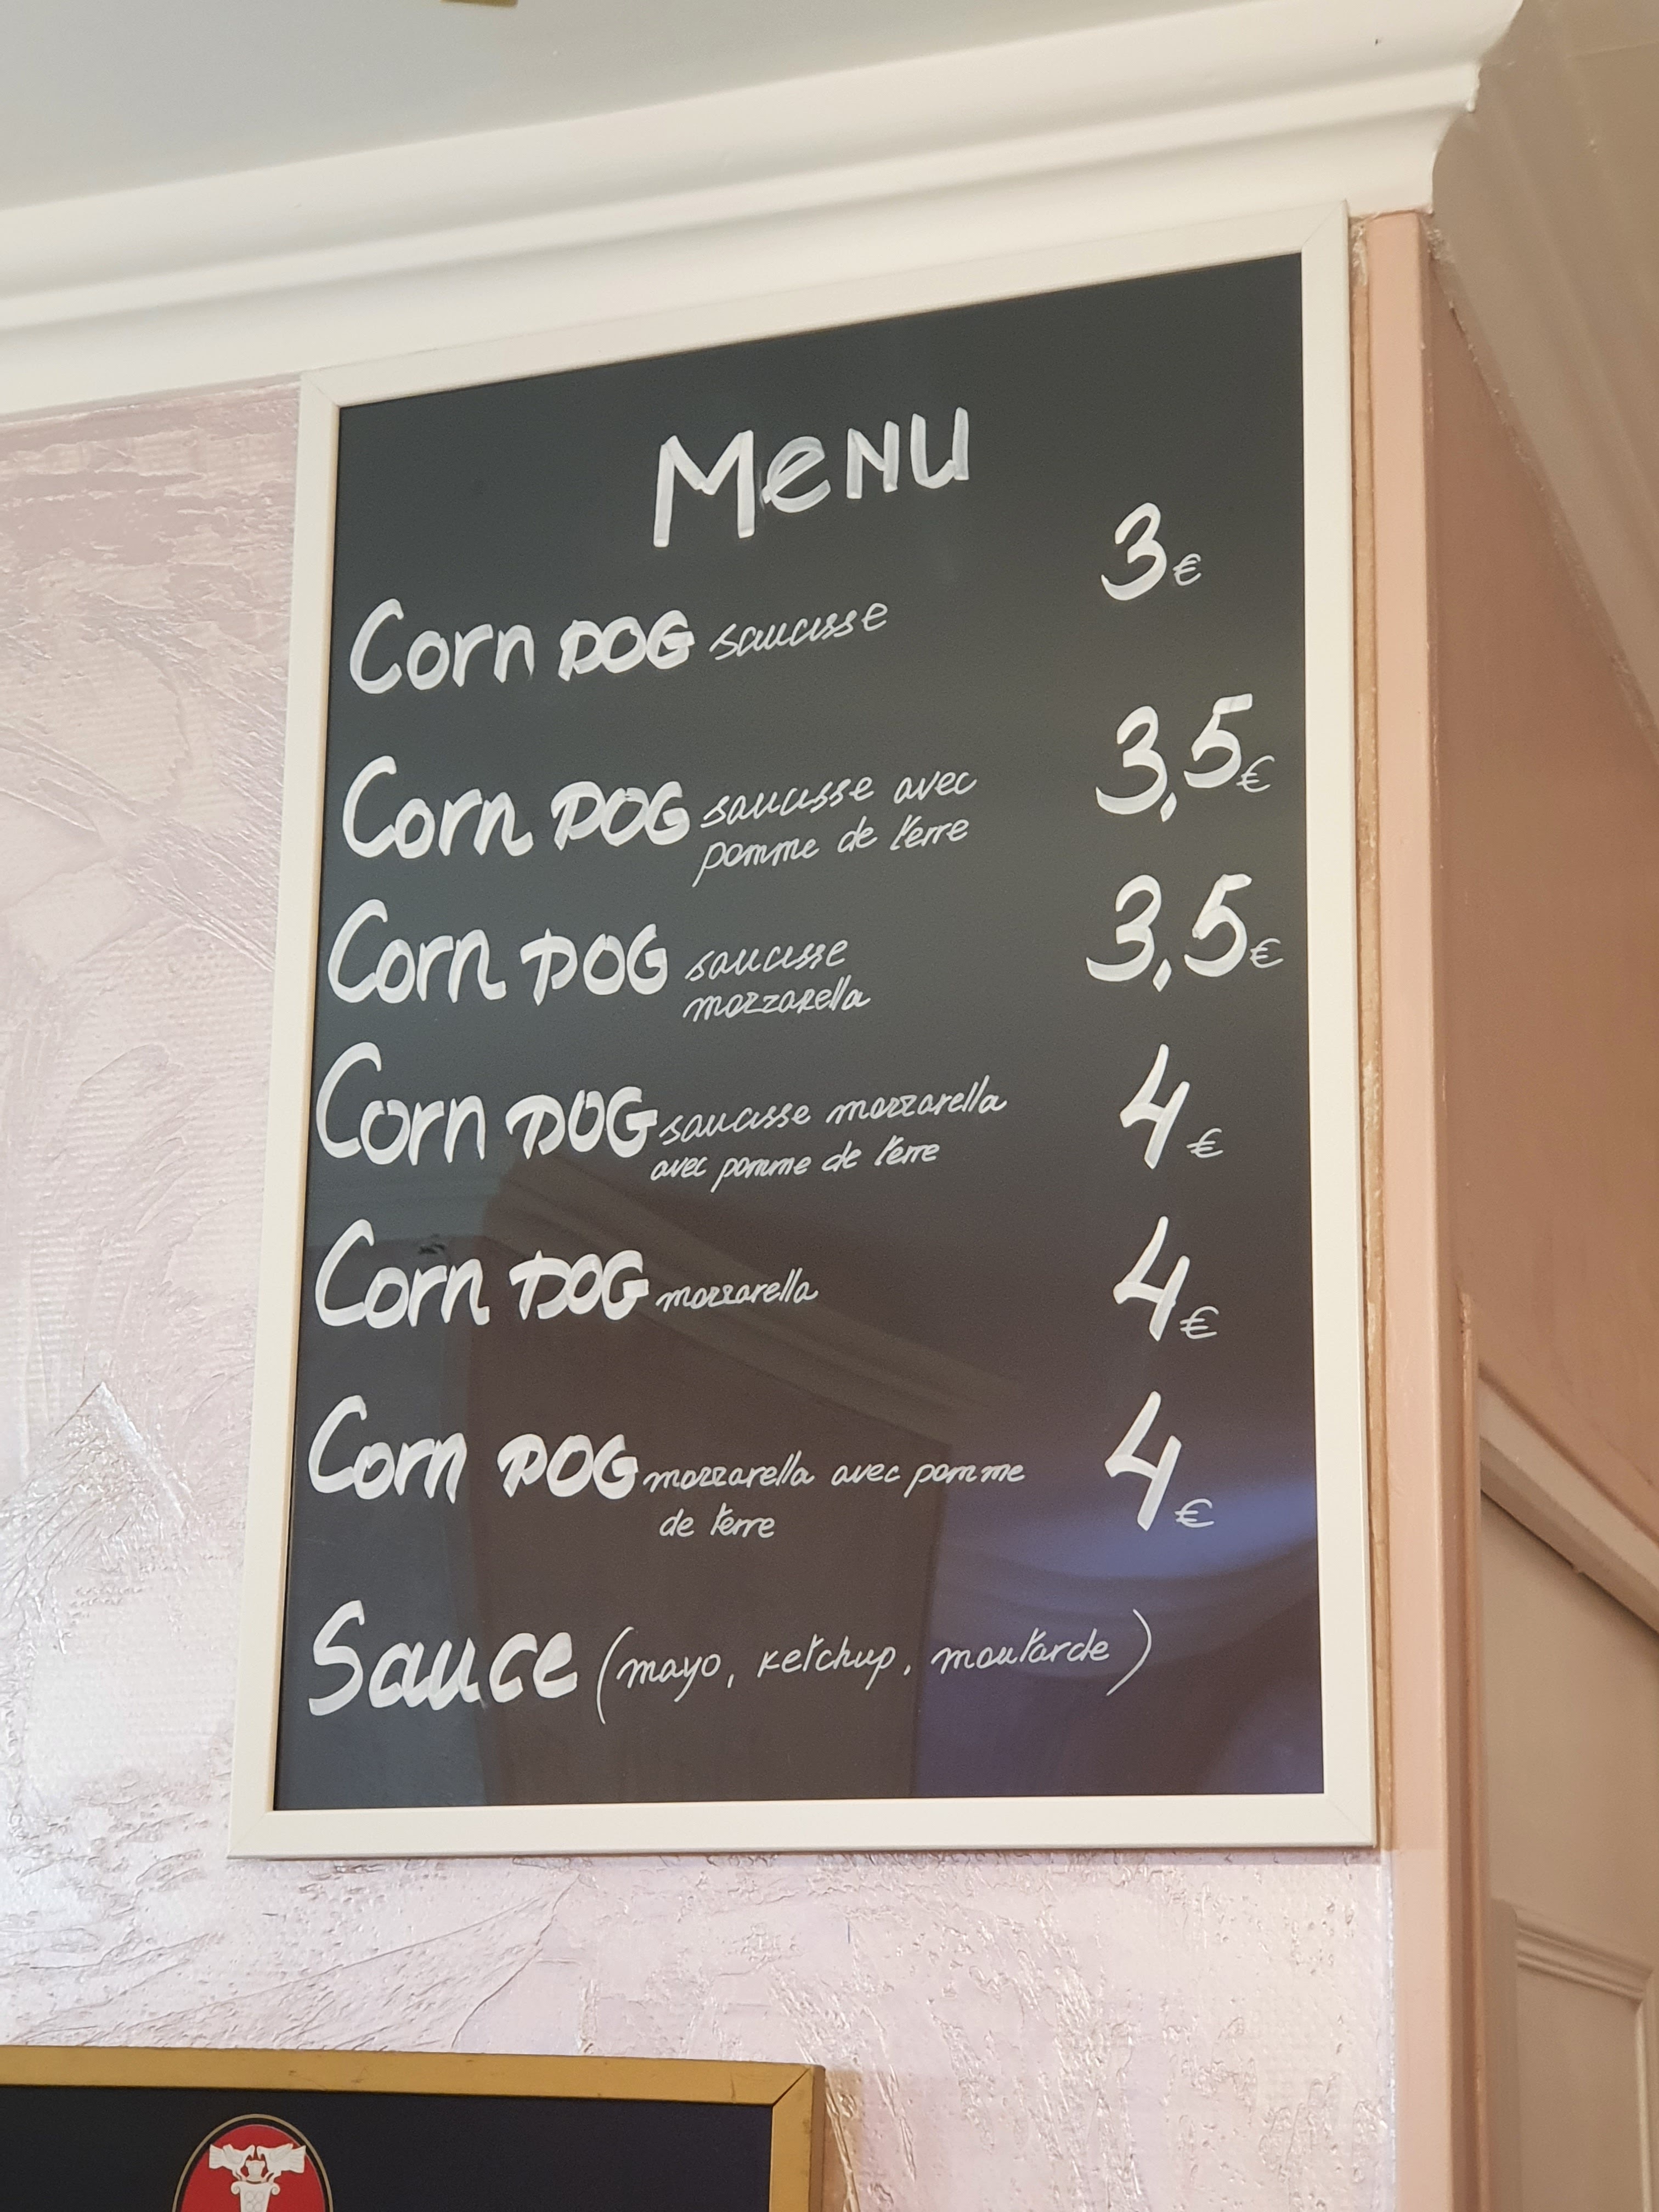 Menu
Corn DOG saucisse 3€
Corn DOG saucisse avec 3,5€
pomme de terre
Corn DOG saucisse 3,5€
mozzarella
Corn DOG saucisse mozzarella 4€
avec pomme de terre
Corn DOG mozzarella 4€
Corn DOG mozzarella avec pomme 4€
de terre
Sauce (mayo, ketchup, moutarde)